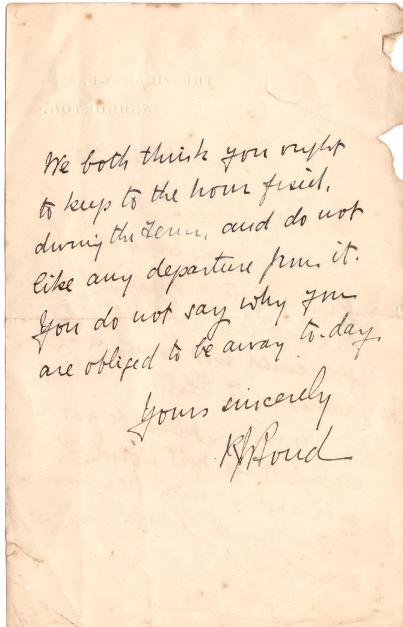 We both think you ought
to keep to the hour fixed,
during the Term, and do not
like any departure from it.
You do not say why you
are obliged to be away to-day.
Yours sincerely